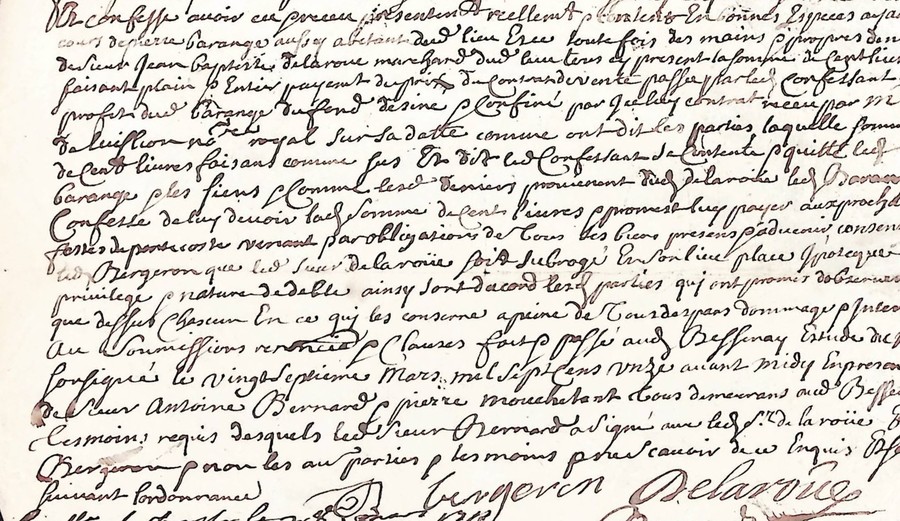 Et confesse avoir eu & receu presentemt & reellemt & contens En bonnes Especes ayant
cours de pierre barange aussy abitant dud lieu Et ce toutefois des mains & propres den
de sieur Jean baptiste delaroue marchand dud lieu tous cy present la somme de Cent livr
faisant plain & Entier payemt du prix du Contrat de vente passé par led Confessant
profit dud barange du fond designe & Confiné par Iceluy contrat receu par M
royal sur sa datte comme ont dit les parties laquelle somm
de Cent livres faisant comme sus Et dit led Confessant se Contente & quitte led
barange & les siens & Comme lesd deniers provienent dud delaroue led Baran
Confesse de luy devoir lad somme de Cent livres & promest luy payer aux proch
festes de pentecoste venant par obligations de Tous ses biens presens & advenir consen
led Bergeron que led sieur delaroüe soit subrogé En son lieu place Ipoteque
privilege & nature de debte ainsy sont dacord lesd parties qui ont promis dobserver
que dessus Chascun En ce qui les conserne a peine de Tous despans dommage & Inter
Au soumissions renoncié & Clauses fait & passé aud Bessenay Estude du
sorsigné le vingtseptieme Mars mil sept cens unze avant midy En presen
de sieur Antoine Bernard & pierre mouchetant Tous demeurans aud Besse
Tesmoins requis desquels led sieur Bernard a signé avec led Sr. de la roüe
Bergeron & non les au. parties & tesmoins pr ne scavoir de ce Enquis
suivant lordonnance
bergeron Delaroüe